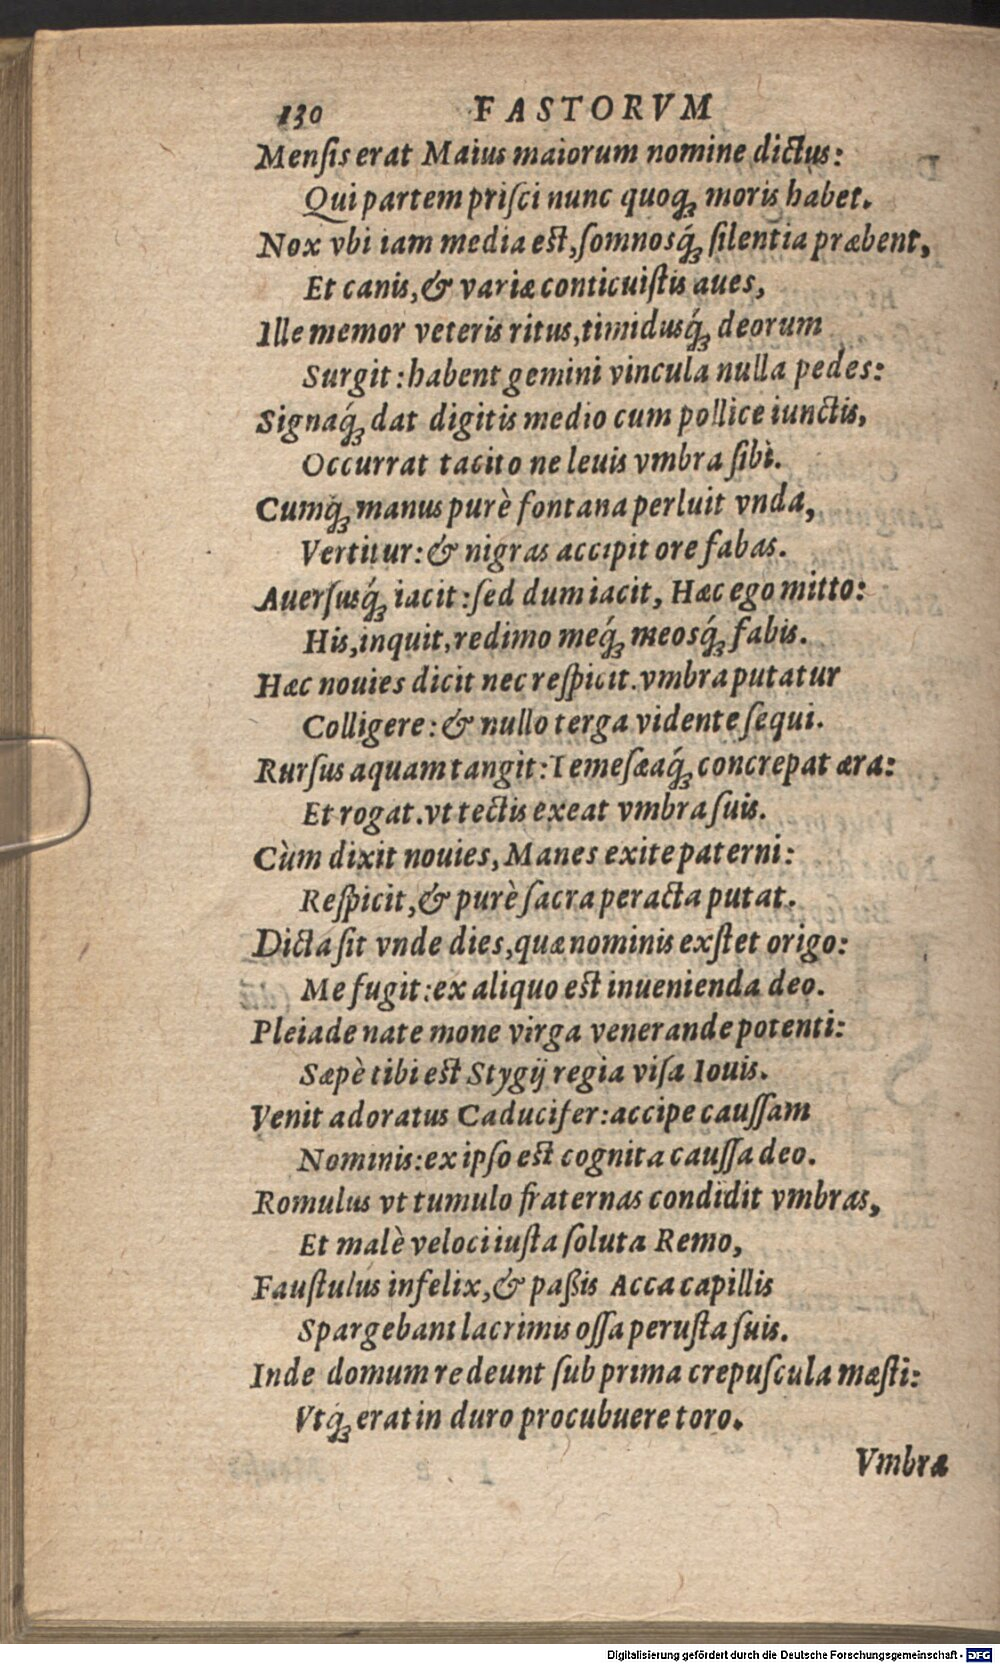 130 FASTORVM
Menſis erat Maius maiorum nomine dictus:
Qui partem priſci nunc quoqꝫ moris habet.
Nox vbi iam media est, ſomnosqꝫ́ ſilentia præbent,
Et canis, & variæ conticuiſtis aues,
Ille memor veteris ritus, timidusqꝫ́ deorum
Surgit: habent gemini vincula nulla pedes:
Signaqꝫ́ dat digitis medio cum pollice iunctis,
Occurrat tacito ne leuis vmbra ſibì.
Cumqꝫ́ manus purè fontana perluit vnda,
Vertitur: & nigras accipit ore fabas.
Auerſusqꝫ́ iacit: ſed dum iacit, Hæc ego mitto:
His, inquit, redimo meqꝫ́ meosqꝫ́ fabis.
Hæc nouies dicit nec reſpicit. vmbra putatur
Colligere: & nullo terga vidente ſequi.
Rurſus aquam tangit: Temeſæaqꝫ́ concrepat æra:
Et rogat. vt tectis exeat vmbra ſuis.
Cùm dixit nouies, Manes exite paterni:
Reſpicit, & purè ſacra peracta putat.
Dicta ſit vnde dies, quæ nominis exſtet origo:
Me fugit: ex aliquo est inuenienda deo.
Pleiade nate mone virga venerande potenti:
Sæpè tibi est Stygij regia viſa Iouis.
Venit adoratus Caducifer: accipe cauſſam
Nominis: ex ipſo est cognita cauſſa deo.
Romulus vt tumulo fraternas condidit vmbras,
Et malè veloci iuſta ſoluta Remo,
Fauſtulus infelix, & paßis Acca capillis
Spargebant lacrimis oſſa peruſta ſuis.
Inde domum redeunt ſub prima crepuſcula mæſti:
Vtqꝫ́ erat in duro procubuere toro.
Vmbræ
Digitalisierung gefördert durch die Deutsche Forschungsgemeinschaft - DFG